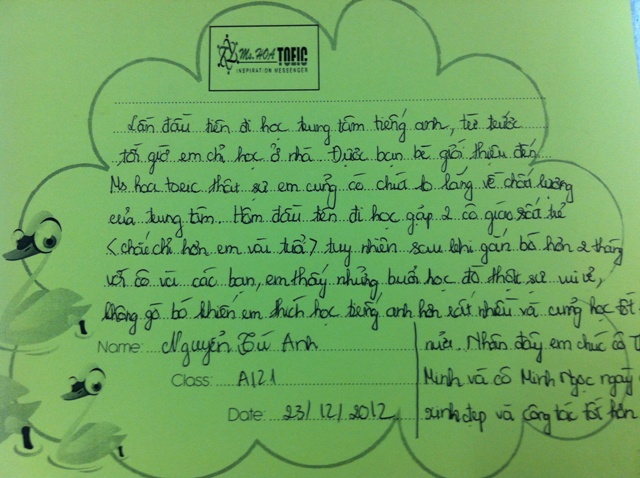 Ms. HOA TOEIC
INSPIRATION MESSENGER
Lần đầu tiên đi học trung tâm tiếng anh, từ trước
tới giờ em chỉ học ở nhà. Được bạn bè giới thiệu đến
Ms hoa toeic thật sự em cũng có chút lo lắng về chất lượng
của trung tâm. Hôm đầu tiên đi học gặp 2 cô giáo rất trẻ
<chắc chỉ hơn em vài tuổi> tuy nhiên sau khi gắn bó hơn 2 tháng
với cô và các bạn, em thấy những buổi học đó thật sự vui vẻ,
không gò bó khiến em thích học tiếng anh hơn rất nhiều và cũng học tốt
Name: Nguyễn Tú Anh
nữa. Nhân đây em chúc cô T
Class: A121
Minh và cô Minh Ngọc ngày
Date: 23/12/2012
xinh đẹp và công tác tốt hơn